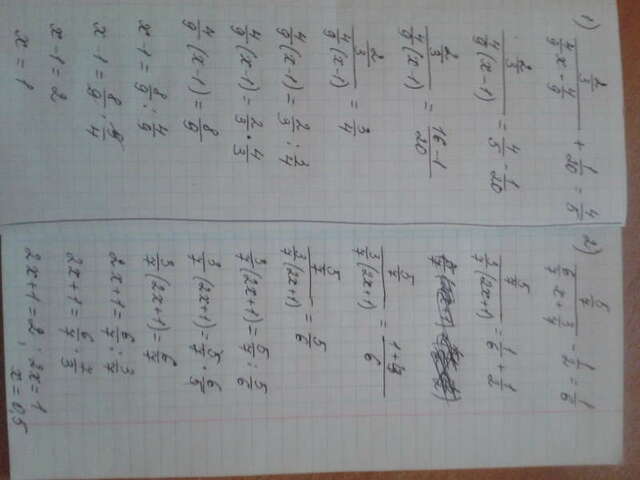 1) (2/3)/(4/9 x - 4/9) + 1/20 = 4/5
(2/3)/(4/9 (x-1)) = 4/5 - 1/20
(2/3)/(4/9 (x-1)) = (16-1)/20
(2/3)/(4/9 (x-1)) = 3/4
4/9 (x-1) = 2/3 : 3/4
4/9 (x-1) = 2/3 · 4/3
4/9 (x-1) = 8/9
x-1 = 8/9 : 4/9
x-1 = 8/9 · 9/4
x-1 = 2
x = 1
2) (5/7)/(6/7 x + 3/7) - 1/2 = 1/6
(5/7)/(3/7 (2x+1)) = 1/6 + 1/2
(5/7)/(3/7 (2x+1)) = (1+4)/6
(5/7)/(3/7 (2x+1)) = 5/6
3/7 (2x+1) = 5/7 : 5/6
3/7 (2x+1) = 5/7 · 6/5
3/7 (2x+1) = 6/7
2x+1 = 6/7 : 3/7
2x+1 = 6/7 · 7/3
2x+1 = 2; 2x = 1
x = 0,5